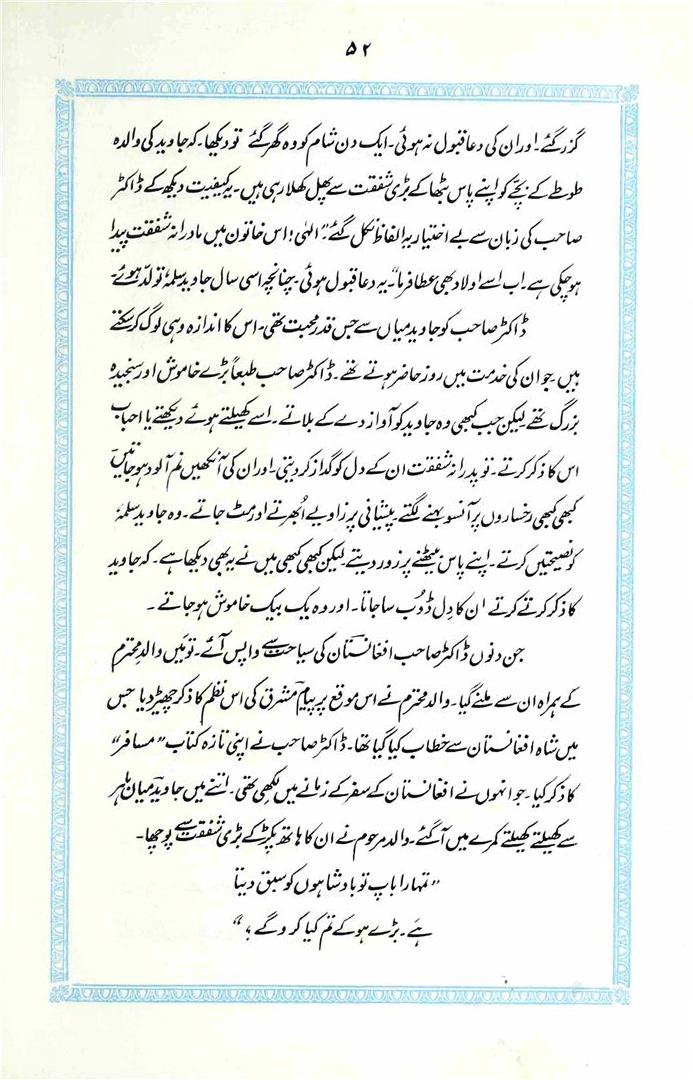 ۵۲
گزر گئے۔ اور ان کی دعا قبول نہ ہوئی۔ ایک دن شام کو وہ گھر گئے تو دیکھا۔ کہ جاوید کی والدہ
طوطے کے بچے کو اپنے پاس بٹھا کے بڑی شفقت سے پھل کھلا رہی ہیں۔ یہ کیفیت دیکھ کے ڈاکٹر
صاحب کی زبان سے بے اختیار یہ الفاظ نکل گئے۔ "الٰہی! اس خاتون میں مادرانہ شفقت پیدا
ہو چکی ہے۔ اب اسے اولاد بھی عطا فرما"۔ یہ دعا قبول ہوئی۔ چنانچہ اسی سال جاوید سلمہٗ تولّد ہوئے۔
ڈاکٹر صاحب کو جاوید میاں سے جس قدر محبت تھی۔ اس کا اندازہ وہی لوگ کر سکتے
ہیں۔ جو ان کی خدمت میں روز حاضر ہوتے تھے۔ ڈاکٹر صاحب طبعاً بڑے خاموش اور سنجیدہ
بزرگ تھے لیکن جب کبھی وہ جاوید کو آواز دے کے بلاتے۔ اسے کھیلتے ہوئے دیکھتے یا احباب
اس کا ذکر کرتے۔ تو پدرانہ شفقت ان کے دل کو گداز کر دیتی۔ اور ان کی آنکھیں نم آلود ہو جاتیں۔
کبھی کبھی رخساروں پر آنسو بہنے لگتے پیشانی پر زاویے اُبھرتے اور مٹ جاتے۔ وہ جاوید سلمہٗ
کو نصیحتیں کرتے۔ اپنے پاس بیٹھنے پر زور دیتے لیکن کبھی کبھی میں نے یہ بھی دیکھا ہے۔ کہ جاوید
کا ذکر کرتے کرتے ان کا دِل ڈُوب سا جاتا۔ اور وہ یک بیک خاموش ہو جاتے۔
جن دنوں ڈاکٹر صاحب افغانستان کی سیاحت سے واپس آئے۔ تو مَیں والد محترم
کے ہمراہ ان سے ملنے گیا۔ والد محترم نے اس موقع پر پیامِ مشرق کی اس نظم کا ذکر چھیڑ دیا جس
میں شاہ افغانستان سے خطاب کیا گیا تھا۔ ڈاکٹر صاحب نے اپنی تازہ کتاب "مسافر"
کا ذکر کیا۔ جو انہوں نے افغانستان کے سفر کے زمانے میں لکھی تھی۔ اتنے میں جاوید میاں باہر
سے کھیلتے کھیلتے کمرے میں آ گئے۔ والد مرحوم نے ان کا ہاتھ پکڑ کے بڑی شفقت سے پوچھا۔
"تمہارا باپ تو بادشاہوں کو سبق دیتا
ہے۔ بڑے ہو کے تم کیا کرو گے؟"